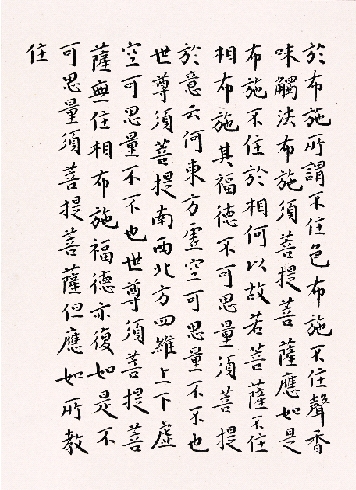 於布施所謂不住色布施不住聲香
味觸法布施須菩提菩薩應如是
布施不住於相何以故若菩薩不住
相布施其福德不可思量須菩提
於意云何東方虛空可思量不不也
世尊須菩提南西北方四維上下虛
空可思量不不也世尊須菩提菩
薩無住相布施福德亦復如是不
可思量須菩提菩薩但應如所教
住